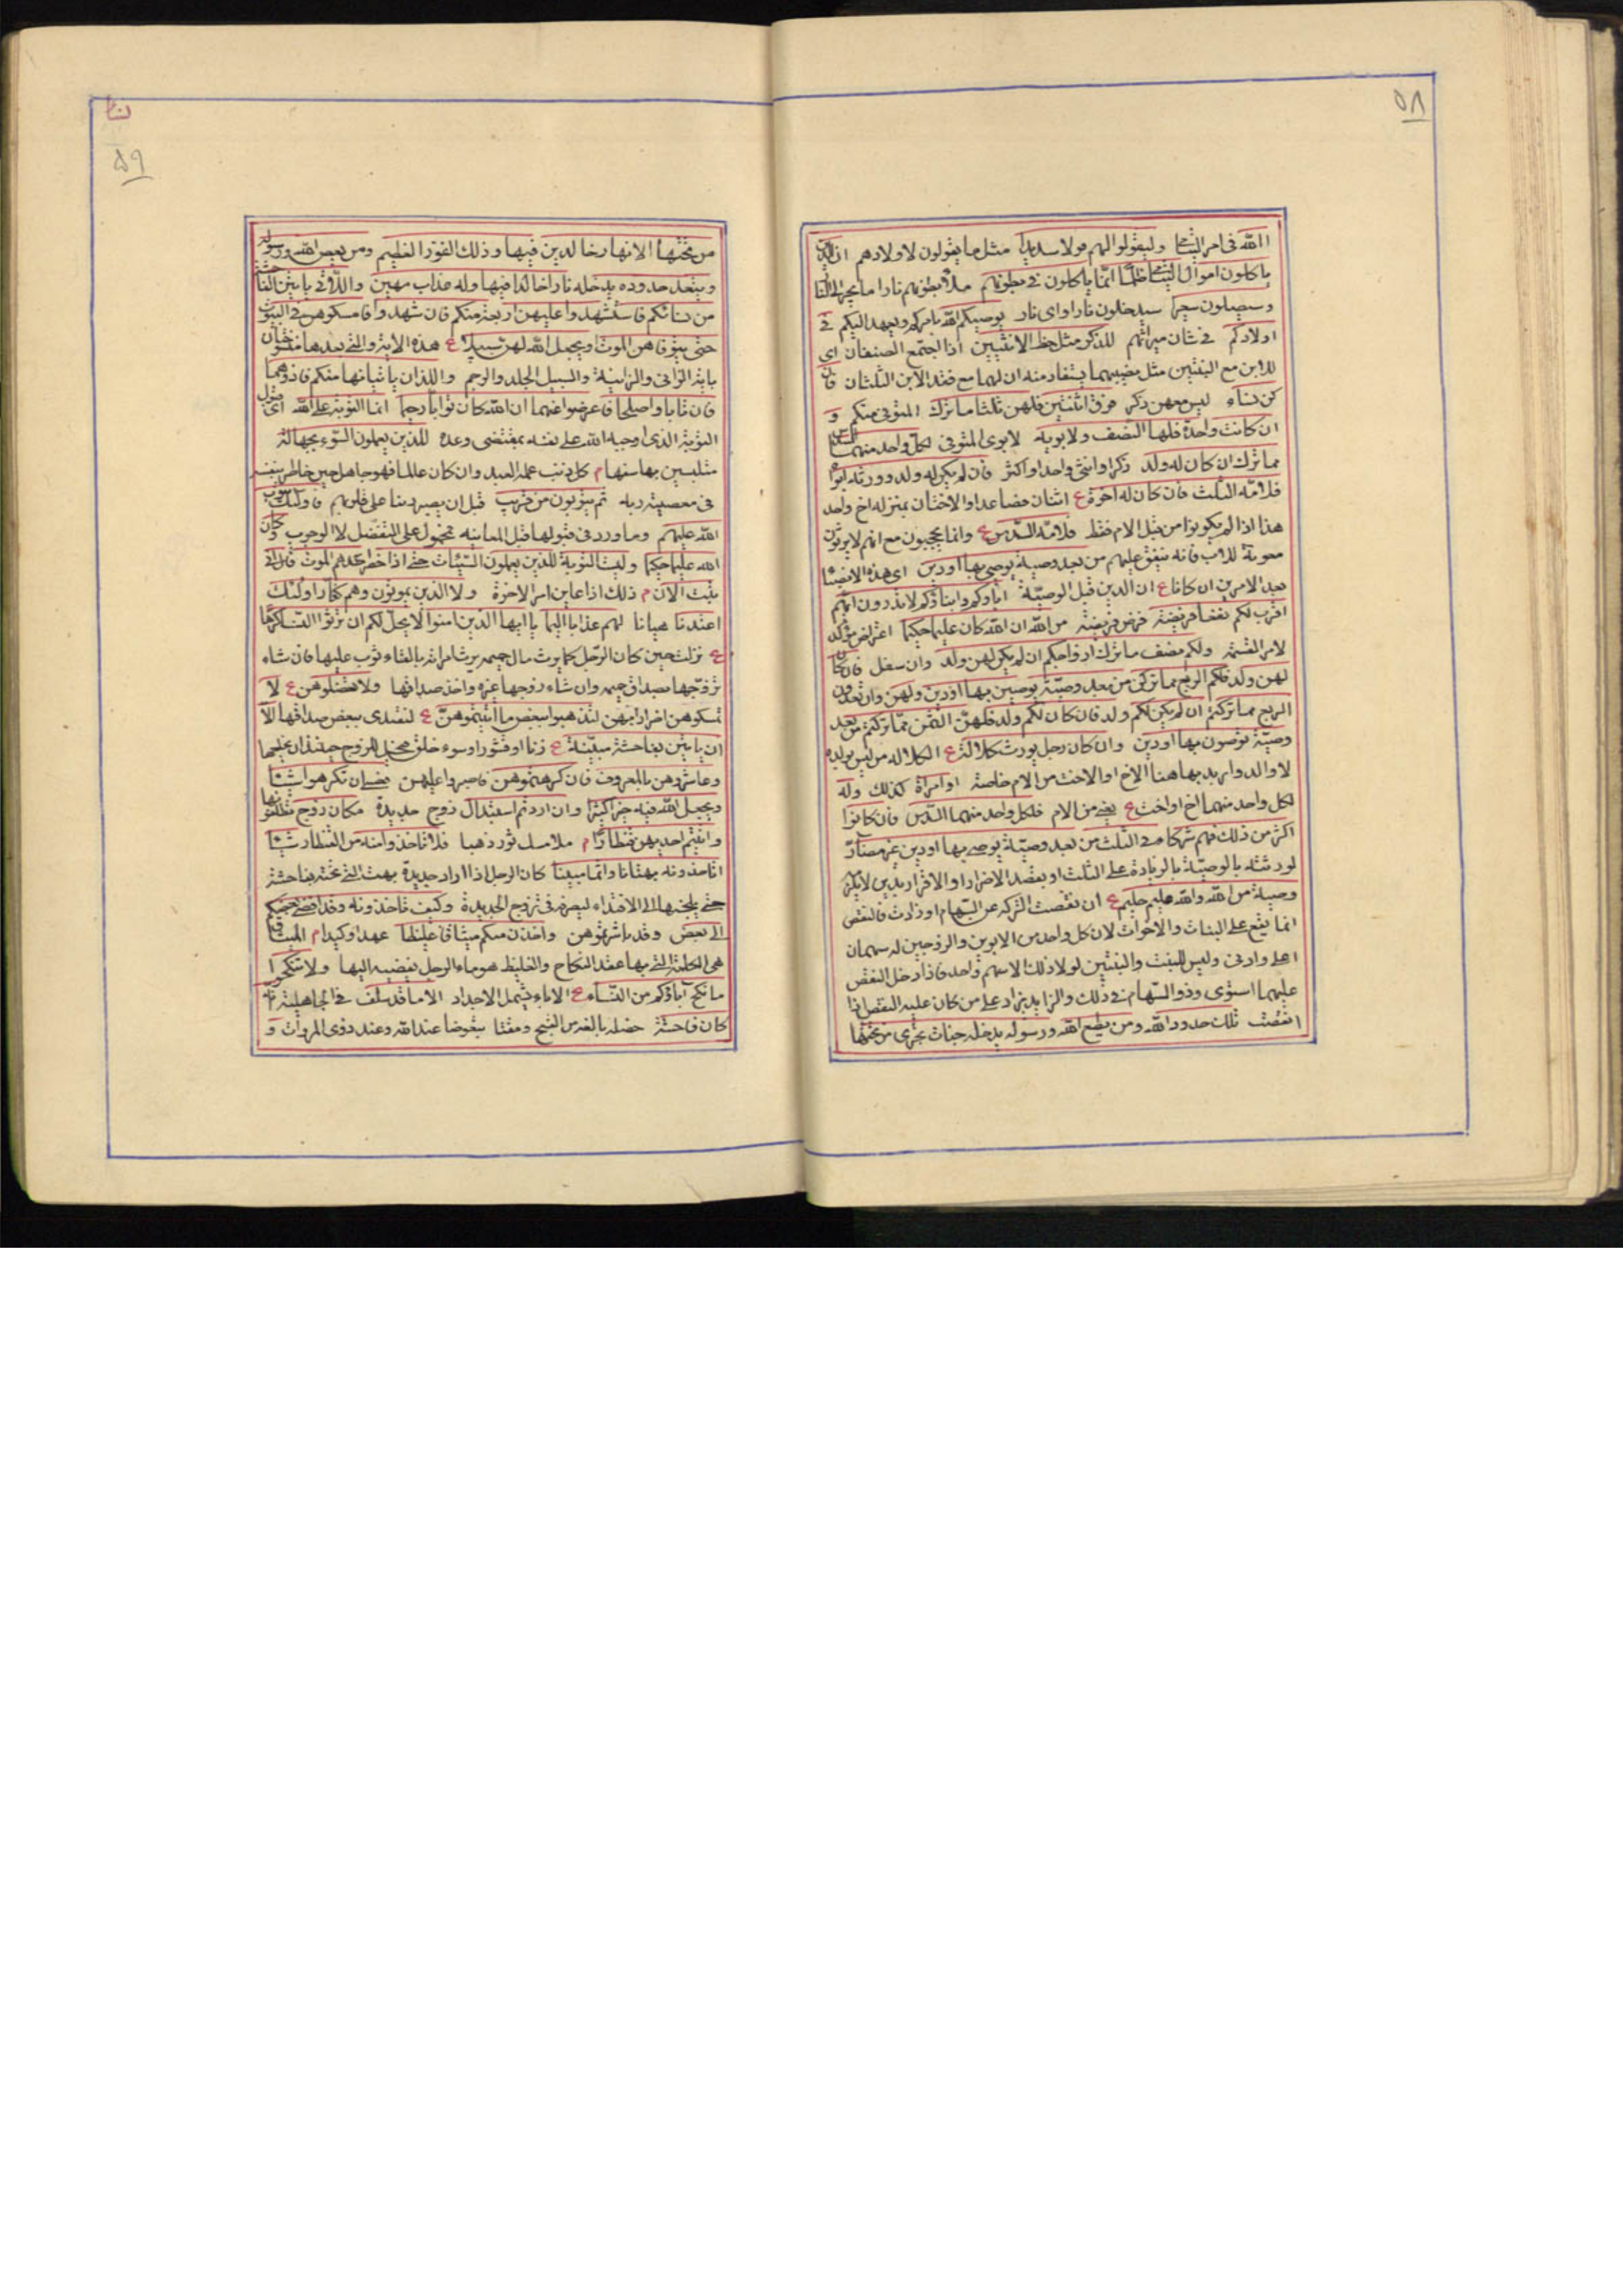 ۵۸
الله فى امر اليتامى وليقولوا لهم قولا سديدا مثل ما يقولون لاولادهم ان الذين
ياكلون اموال اليتامى ظلما انما ياكلون فى بطونهم ملأ بطونهم نارا ما يجر الى النار
وسيصلون سعيرا سيدخلون نارا واى نار يوصيكم الله يامركم ويعهد اليكم فى
اولادكم فى شان ميراثهم للذكر مثل حظ الانثيين اذا اجتمع الصنفان اى
للابن مع البنتين مثل نصيبهما يستفاد منه ان لهما مع فقد الابن الثلثان فان
كن نساء ليس معهن ذكر فوق اثنتين فلهن ثلثا ما ترك المتوفى منكم و
ان كانت واحدة فلها النصف ولابويه لابوى المتوفى لكل واحد منهما السدس
مما ترك ان كان له ولد ذكرا وانثى واحدا واكثر فان لم يكن له ولد وورثه ابواه
فلامه الثلث فان كان له اخوة ع اثنان فصاعدا والاختان بمنزلة اخ واحد
هذا اذا لم يكونوا من قبل الام فقط فلامه السدس ع وانما يحجبون مع انهم لا يرثون
معونة للاب فانه ينفق عليهم من بعد وصية يوصى بها او دين اى هذه الانصباء
بعد الامرين ان كانا ع ان الدين قبل الوصية آباؤكم وابناؤكم لا تدرون ايهم
اقرب لكم نفعا فريضة فرض فريضة من الله ان الله كان عليما حكيما اعتراض مؤكد
لامر القسمة ولكم نصف ما ترك ازواجكم ان لم يكن لهن ولد وان سفل فان كان
لهن ولد فلكم الربع مما تركن من بعد وصية يوصين بها او دين ولهن وان تعددن
الربع مما تركتم ان لم يكن لكم ولد فان كان لكم ولد فلهن الثمن مما تركتم من بعد
وصية توصون بها او دين وان كان رجل يورث كلالة ع الكلالة من ليس بولد
لا والد واريد بها هنا الاخ او الاخت من الام خاصة او امراة كذلك وله
لكل واحد منهما اخ او اخت ع يعنى من الام فلكل واحد منهما السدس فان كانوا
اكثر من ذلك فهم شركاء فى الثلث من بعد وصية يوصى بها او دين غير مضار
لورثته بالوصية بالزيادة على الثلث او بقصد الاضرار او الاقرار بدين لا يلزم
وصية من الله والله عليم حليم ع ان نقصت التركة عن السهام او زادت فالنقص
انما يقع على البنات والاخوات لان كل واحد من الابوين والزوجين له سهمان
اعلى وادنى وليس للبنت والبنتين لولا ذلك الا سهم واحد فاذا دخل النقص
عليهما استوى وذو السهام فى ذلك والزايد يزاد على من كان عليه النقص اذا
انقصت تلك حدود الله ومن يطع الله ورسوله يدخله جنات تجرى من تحتها
۵۹
من تحتها الانهار خالدين فيها وذلك الفوز العظيم ومن يعص الله ورسوله
ويتعد حدوده يدخله نارا خالدا فيها وله عذاب مهين واللاتى ياتين الفاحشة
من نسائكم فاستشهدوا عليهن اربعة منكم فان شهدوا فامسكوهن فى البيوت
حتى يتوفاهن الموت او يجعل الله لهن سبيلا ع هذه الاية والتى بعدها منسوختان
باية الزانى والزانية والسبيل الجلد والرجم واللذان ياتيانها منكم فاذوهما
فان تابا واصلحا فاعرضوا عنهما ان الله كان توابا رحيما انما التوبة على الله اى قبول
التوبة الذى اوجبه الله على نفسه بمقتضى وعده للذين يعملون السوء بجهالة
متلبسين بها سفها م كل ذنب عمله العبد وان كان عالما فهو جاهل حين خاطر بنفسه
فى معصية ربه ثم يتوبون من قريب قبل ان يصير رينا على قلوبهم فاولئك يتوب
الله عليهم وما ورد فى قبولها قبل المعاينة محمول على التفضل لا الوجوب وكان
الله عليما حكيما وليست التوبة للذين يعملون السيئات حتى اذا حضر احدهم الموت قال انى
تبت الان م ذلك اذا عاين امر الاخرة ولا الذين يموتون وهم كفار اولئك
اعتدنا هيانا لهم عذابا اليما يا ايها الذين امنوا لا يحل لكم ان ترثوا النساء كرها
ع نزلت حين كان الرجل كما يرث مال حميمه يرث امراته بالقاء ثوب عليها فان شاء
تزوجها بصداق حميمه وان شاء زوجها غيره واخذ صداقها ولا تعضلوهن ع لا
تمسكوهن اضرارا بهن لتذهبوا ببعض ما آتيتموهن ع لتفتدى ببعض صداقها الا
ان ياتين بفاحشة مبينة ع زنا او نشوزا وسوء خلق فيحل للزوج حينئذ ان يخلعها
وعاشروهن بالمعروف فان كرهتموهن فاصبروا عليهن فعسى ان تكرهوا شيئا
ويجعل الله فيه خيرا كثيرا وان اردتم استبدال زوج جديدة مكان زوج تطلقونها
وآتيتم احديهن قنطارا م ملأ مسك ثور ذهبا فلا تاخذوا منه من القنطار شيئا
اتاخذونه بهتانا واثما مبينا كان الرجل اذا اراد جديدة بهت التى تحته بفاحشة
حتى يلجئها الى الافتداء ليصرفه فى تزوج الجديدة وكيف تاخذونه وقد افضى بعضكم
الى بعض وقد باشرتموهن واخذن منكم ميثاقا غليظا عهدا وكيدا م الميثاق
هى الكلمة التى بها عقد النكاح والغليظ هو ماء الرجل يفضيه اليها ولا تنكحوا
ما نكح آباؤكم من النساء ع الاباء يشمل الاجداد الا ما قد سلف فى الجاهلية انه
كان فاحشة خصلة بالغة من القبح ومقتا مبغوضا عند الله وعند ذوى المروات و